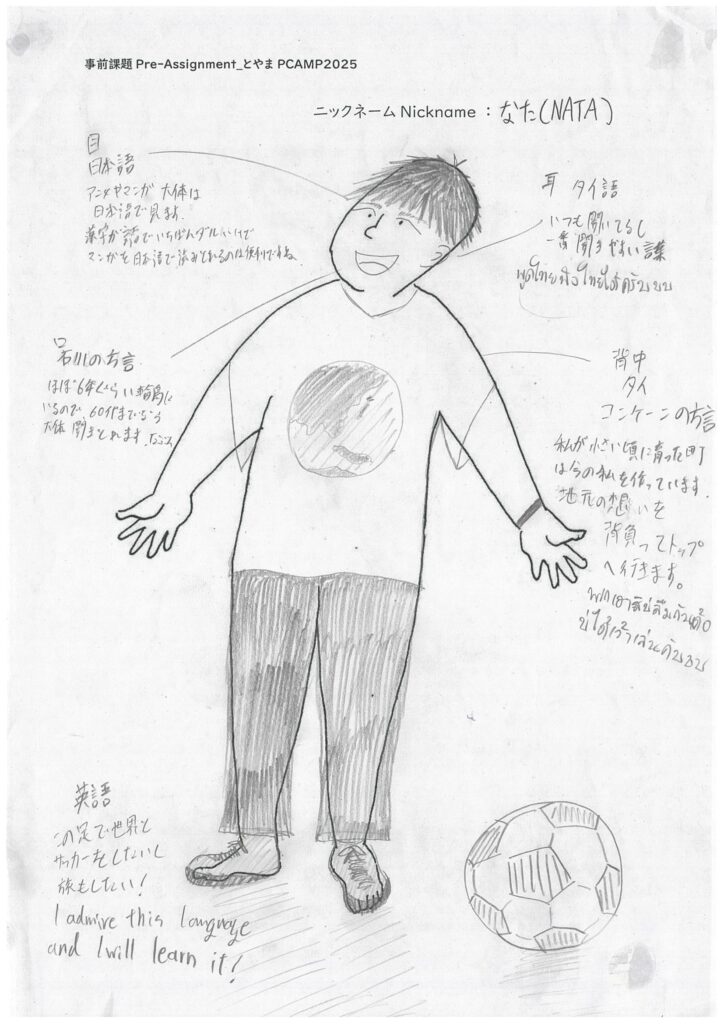 事前課題 Pre-Assignment_とやま PCAMP2025
ニックネーム Nickname : なた(NATA)
目
日本語
アニメやマンガ 大体は
日本語で見ます.
マンガを日本語で読みとれるのは便利ですね
耳 タイ語
いつも聞いてるし
一番聞きやすい
口
石川の方言
ほぼ6年ぐらい輪島に
いるので、60代までなら
大体 聞きとれます.
背中
タイ
コンケーンの方言
私が小さい頃に育った町
は今の私を作っています.
地元の想いを
背負ってトップ
へ行きます。
英語
この足で世界と
サッカーをしたいし
旅もしたい!
I admire this language
and I will learn it!